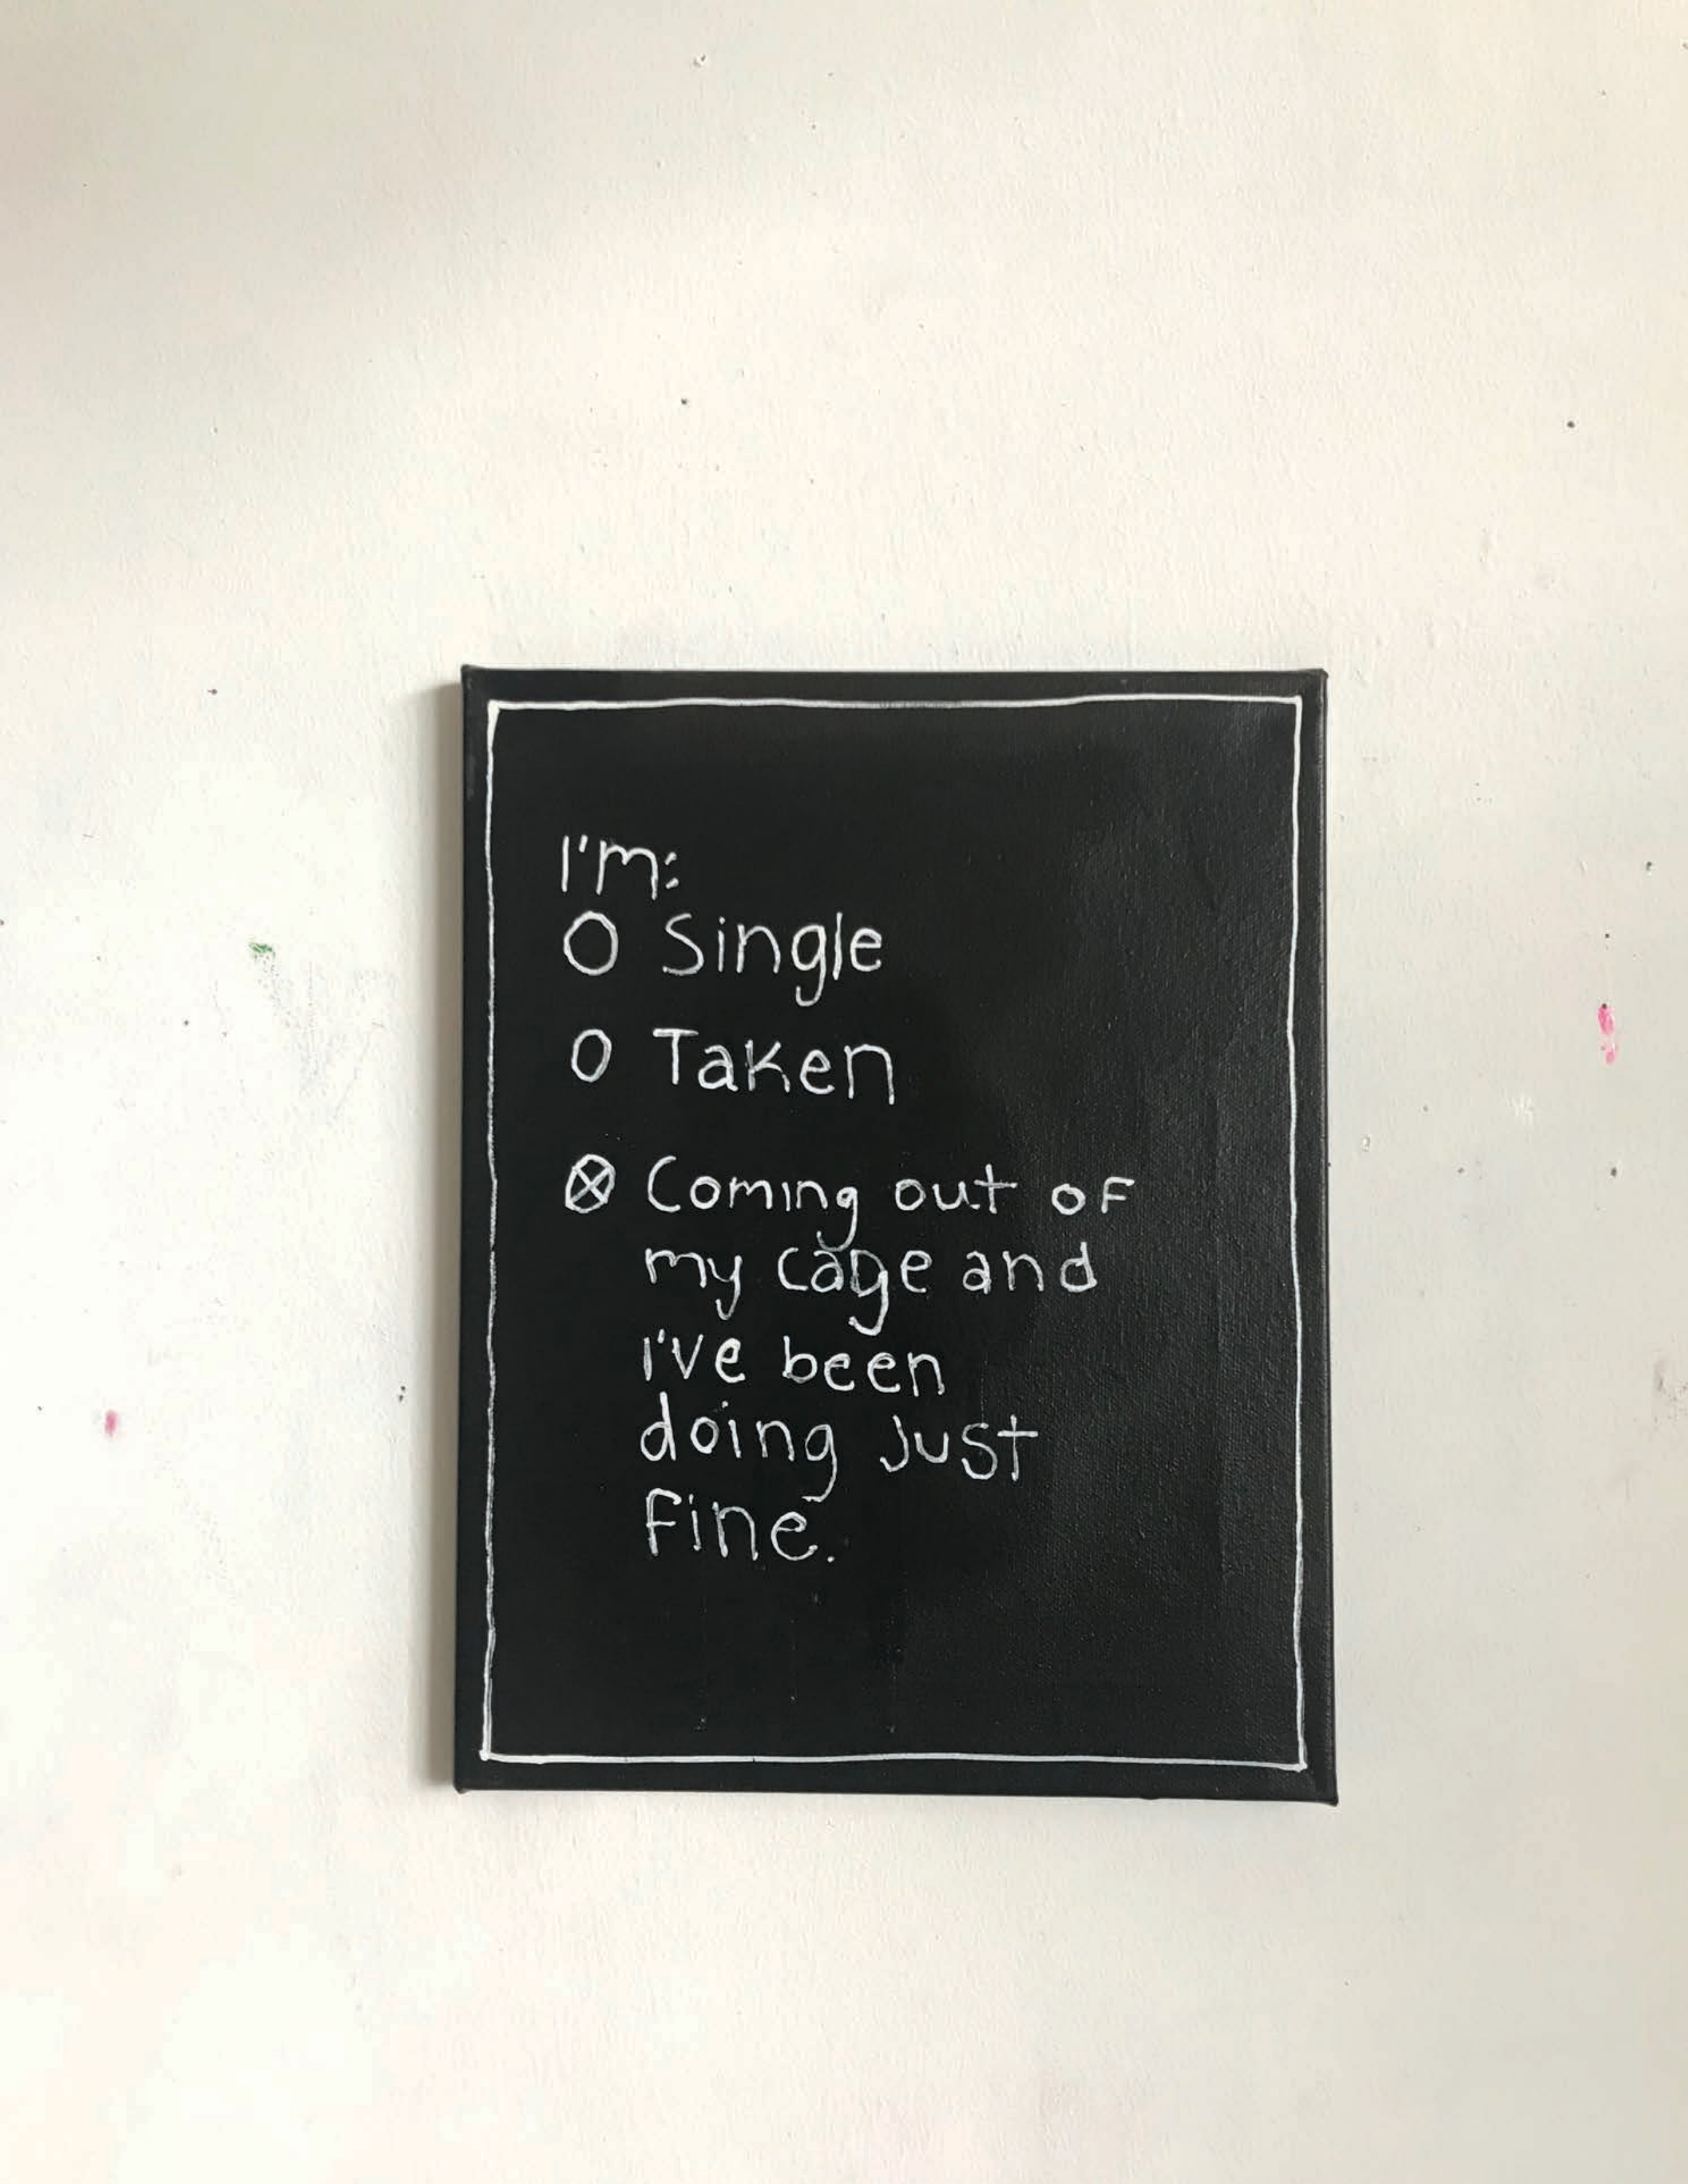 I'm:
O Single
O Taken
⊗ Coming out of
my cage and
I've been
doing just
fine.